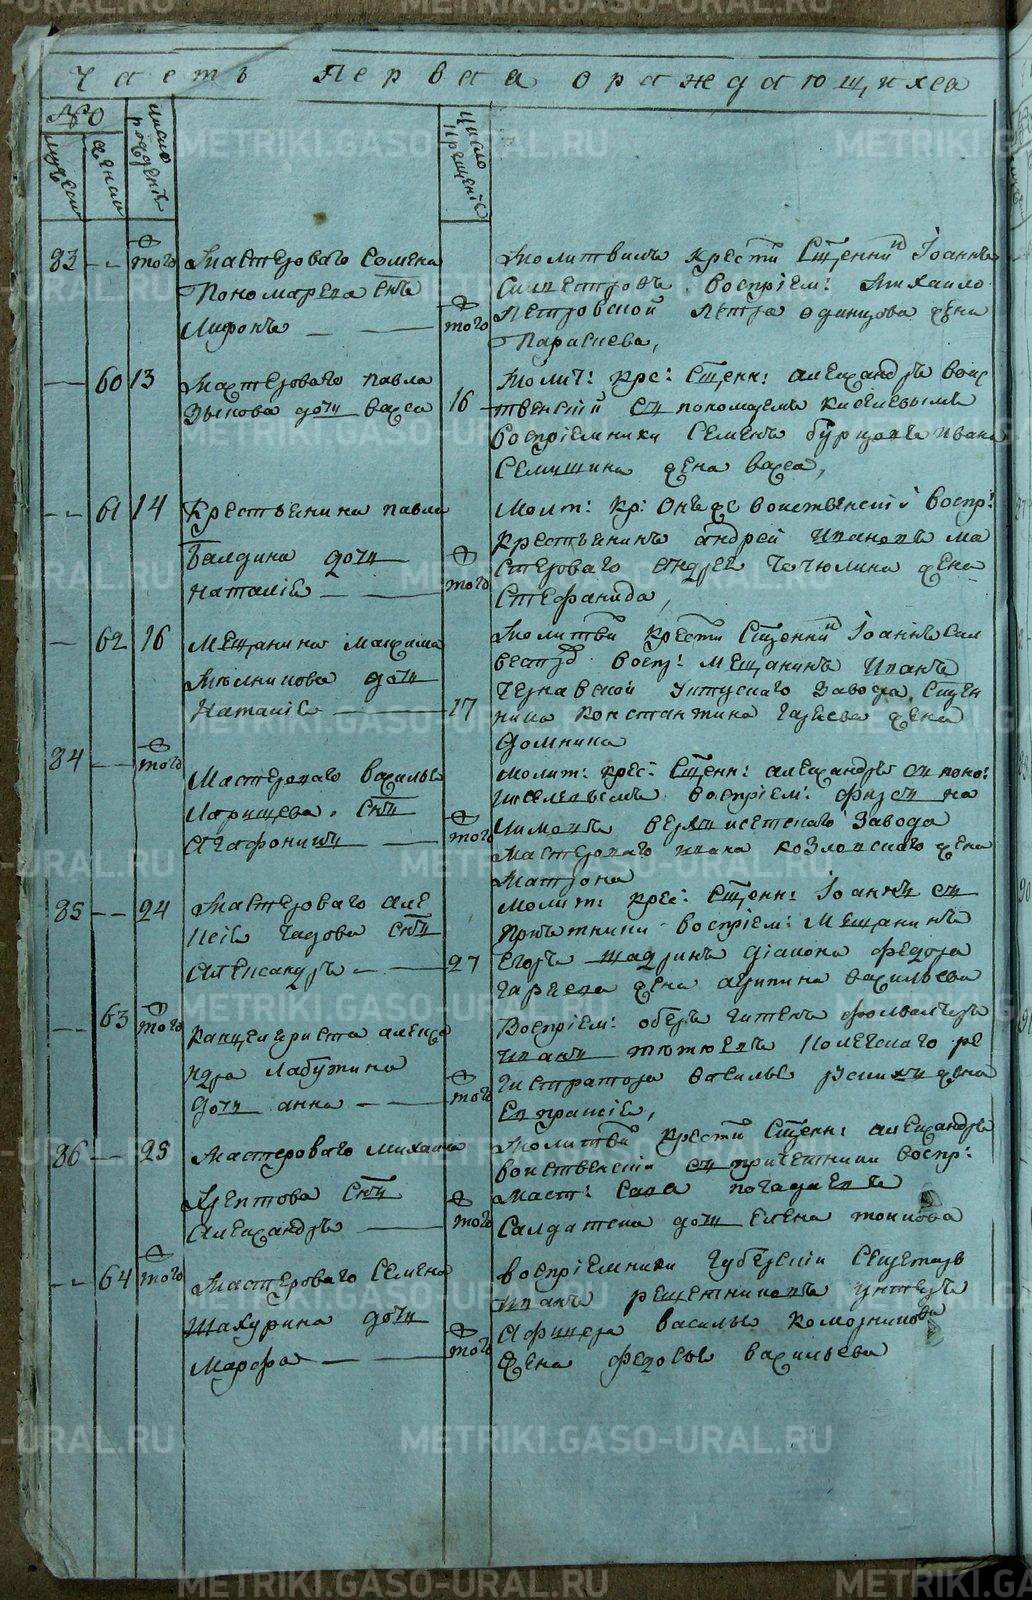 Часть Первая ораждающихса
№
мужеск
женск
число рожденіе
число крещеніе
83 -- того Мастероваго Семена
Пономарева снъ
Лифонъ —— того
Молитвилъ крести Сщенникъ Іоаннъ
Силвестровъ воспріем: Михаило
Петровской Петра Одинцова жена
Параскева,
— 60 13 Мастероваго Павла
Зыкова дочь Васса 16
Молит: кре: Сщенн: Александръ Воис
твенскій съ пономаремъ Киселевымъ
Воспріемники Семенъ Ивана
Селишина жена Васса,
-- 61 14 Крестьянина Павла
Балдина дочь
Наталіе —— того
Молт: кр: Онъ же Воиственскій Воспр:
крестьянинъ Андрей Ивановъ ма
стероваго Андрея Чечюлина жена
Стефанида,
— 62 16 Мещанина Максима
Мелникова дочь
Наталіе —— 17
Молитви крести Сщенникъ Іоаннъ Сил
вестр воспр: мещанинъ Иванъ
Чернавской Уктуского Завода Сщен
ника Константина Гаряева жена
Домника
84 — того
Мастероваго Василья
Ларищева. снъ
Агафоникъ —— того
Молит: крес: Сщенн: Александръ съ поно:
Киселевымъ воспріем:
Верхисетского Завода
Мастероваго Ивана Козловского жена
Матрона
85 -- 24 Мастероваго Але
ксіе Чадова снъ
Александръ —— 27
Молит: крес: Сщенн: Іоаннъ съ
причетники воспріем: Мещанинъ
Егоръ Шадринъ діакона Федора
Гаряева жена Агрипина Васильева
— 63 того
Канцеляриста Алекса
ндра Лабутина
дочь Анна —— того
Воспріем: оберъ
Иванъ колежского ре
гистратора Василья жена
Евпраксіе,
86 -- 25 Мастероваго Михаила
снъ
Александръ —— того
Молитви крести Сщенн: Александръ
Воиственскій съ причетники воспр:
маст: Сава
Салдатска дочь Елена
-- 64 того Мастероваго Семена
Шакурина дочь
Марфа —— того
Воспріемники Губерскій Секретарь
Иванъ Решетниковъ унтеръ
Афицера Василья
жена Федосье Васильева
METRIKI.GASO-URAL.RU